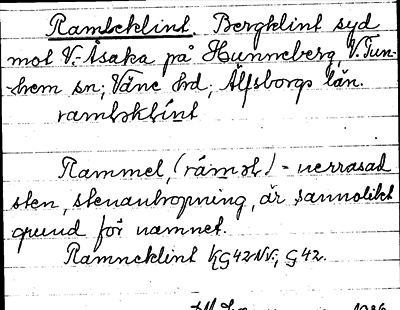 Rambeklint. Bergklint syd
mot V.-Åsaka på Hunneberg, V. Tun-
hem sn; Väne hrd; Älfsborgs län.
rambəklint
Rammel, (ráməl) - nerrasad
sten, stenanhopning, är sannolikt
grund för namnet.
Ramneklint KG42NV; G42.
1936